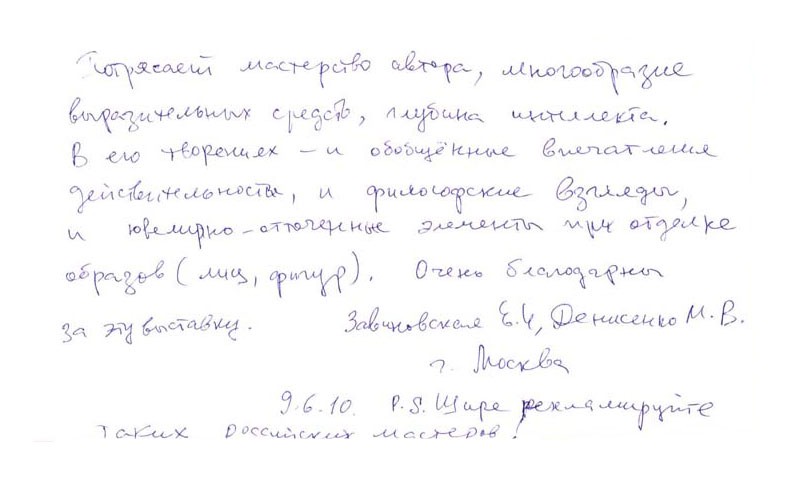 Потрясает мастерство автора, многообразие
выразительных средств, глубина интеллекта.
В его творениях – и обобщённые впечатления
действительности, и философские взгляды,
и ювелирно-отточенные элементы при отделке
образов (лиц, фигур). Очень благодарны
за эту выставку. Завиновская Е.И, Денисенко М.В.
г. Москва
9.6.10. P.S. Шире рекламируйте
таких российских мастеров!